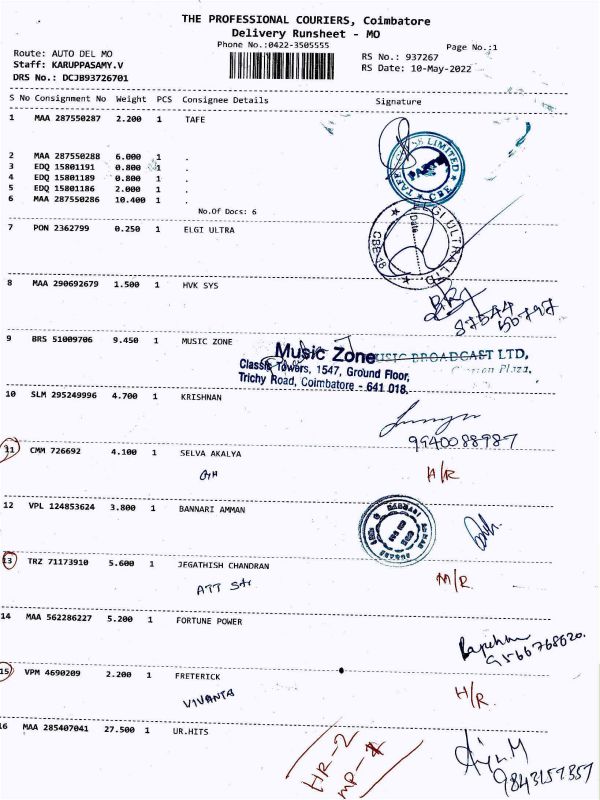 THE PROFESSIONAL COURIERS, Coimbatore
Delivery Runsheet - MO
Phone No.:0422-3505555
Page No.:1
Route: AUTO DEL MO
Staff: KARUPPASAMY.V
DRS No.: DCJB93726701
RS No.: 937267
RS Date: 10-May-2022
S No Consignment No Weight PCS Consignee Details Signature
1 MAA 287550287 2.200 1 TAFE
2 MAA 287550288 6.000 1 .
3 EDQ 15801191 0.800 1 .
4 EDQ 15801189 0.800 1 .
5 EDQ 15801186 2.000 1 .
6 MAA 287550286 10.400 1 .
No.Of Docs: 6
LIMITED
CBE
7 PON 2362799 0.250 1 ELGI ULTRA
ELGI ULTRA LTD
Date
CBE-18
8 MAA 290692679 1.500 1 HVK SYS
87544
50797
9 BRS 51009706 9.450 1 MUSIC ZONE
Music Zone
MUSIC BROADCAST LTD,
Classic Towers, 1547, Ground Floor,
Plaza,
Trichy Road, Coimbatore - 641 018.
10 SLM 295249996 4.700 1 KRISHNAN
9940088987
11 CMM 726692 4.100 1 SELVA AKALYA
H/R
12 VPL 124853624 3.800 1 BANNARI AMMAN
BANNARI AMMAN
13 TRZ 71173910 5.600 1 JEGATHISH CHANDRAN
ATT
M/R
14 MAA 562286227 5.200 1 FORTUNE POWER
9566768620.
15 VPM 4690209 2.200 1 FRETERICK
VIVANTA
H/R
16 MAA 285407041 27.500 1 UR.HITS
HR-2
MP-1
9843157357